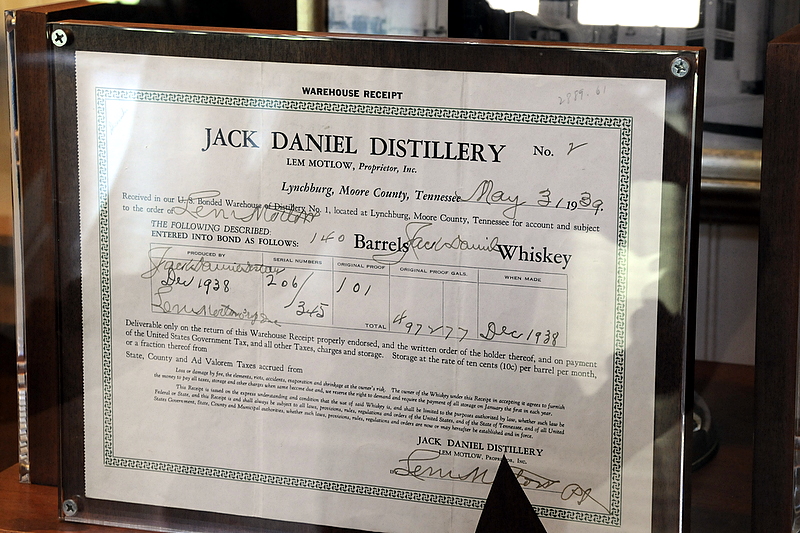 WAREHOUSE RECEIPT
2889.61
JACK DANIEL DISTILLERY No. 2
LEM MOTLOW, Proprietor, Inc.
Lynchburg, Moore County, Tennessee May 31, 1939.
Received in our U. S. Bonded Warehouse of Distillery No. 1, located at Lynchburg, Moore County, Tennessee for account and subject
to the order of Lem Motlow
THE FOLLOWING DESCRIBED:
ENTERED INTO BOND AS FOLLOWS: 140 Barrels Jack Daniel Whiskey
PRODUCED BY SERIAL NUMBERS ORIGINAL PROOF ORIGINAL PROOF GALS. WHEN MADE
Jack Daniel Distillery
Dec 1938 206/ 101
Lem Motlow Prop Inc /345 TOTAL 497277 Dec 1938
Deliverable only on the return of this Warehouse Receipt properly endorsed, and the written order of the holder thereof, and on payment
of the United States Government Tax, and all other Taxes, charges and storage. Storage at the rate of ten cents (10c) per barrel per month,
or a fraction thereof from
State, County and Ad Valorem Taxes accrued from
Loss or damage by fire, the elements, riots, accidents, evaporation and shrinkage at the owner's risk. The owner of the Whiskey under this Receipt in accepting is agrees to furnish
the money to pay all taxes, storage and other charges when same become due and, we reserve the right to demand and require the payment of all storage on January the first in each year.
This Receipt is issued on the express understanding and condition that the use of said Whiskey is, and shall be limited to the purposes authorized by law, whether such law be
Federal or State, and this Receipt is and shall always be subject to all laws, provisions, rules, regulations and orders of the United States, and of the State of Tennessee, and of all United
States Government, State, County and Municipal authorities, whether such laws, provisions, rules, regulations and orders are now or may hereafter be established and in force.
JACK DANIEL DISTILLERY
LEM MOTLOW, Proprietor, Inc.
Lem Motlow